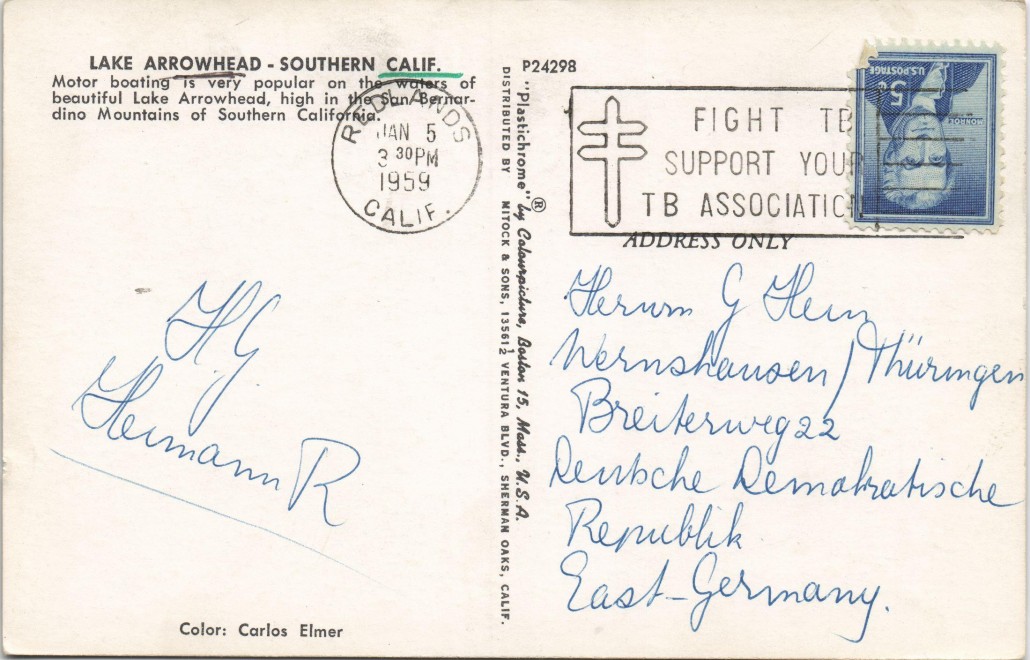 LAKE ARROWHEAD - SOUTHERN CALIF.
Motor boating is very popular on the waters of
beautiful Lake Arrowhead, high in the San Bernar-
dino Mountains of Southern California.
REDLANDS
JAN 5
3 30 PM
1959
CALIF.
HG
Hermann R
Color: Carlos Elmer
"Plastichrome"® by Colourpicture, Boston 15, Mass., U.S.A.
DISTRIBUTED BY MITOCK & SONS, 13561½ VENTURA BLVD., SHERMAN OAKS, CALIF.
P24298
FIGHT TB
SUPPORT YOUR
TB ASSOCIATION
U.S. POSTAGE
5
MONROE
ADDRESS ONLY
Herrn G
Wernshausen / Thüringen
Breiterweg 22
Deutsche Demokratische
Republik
East-Germany.